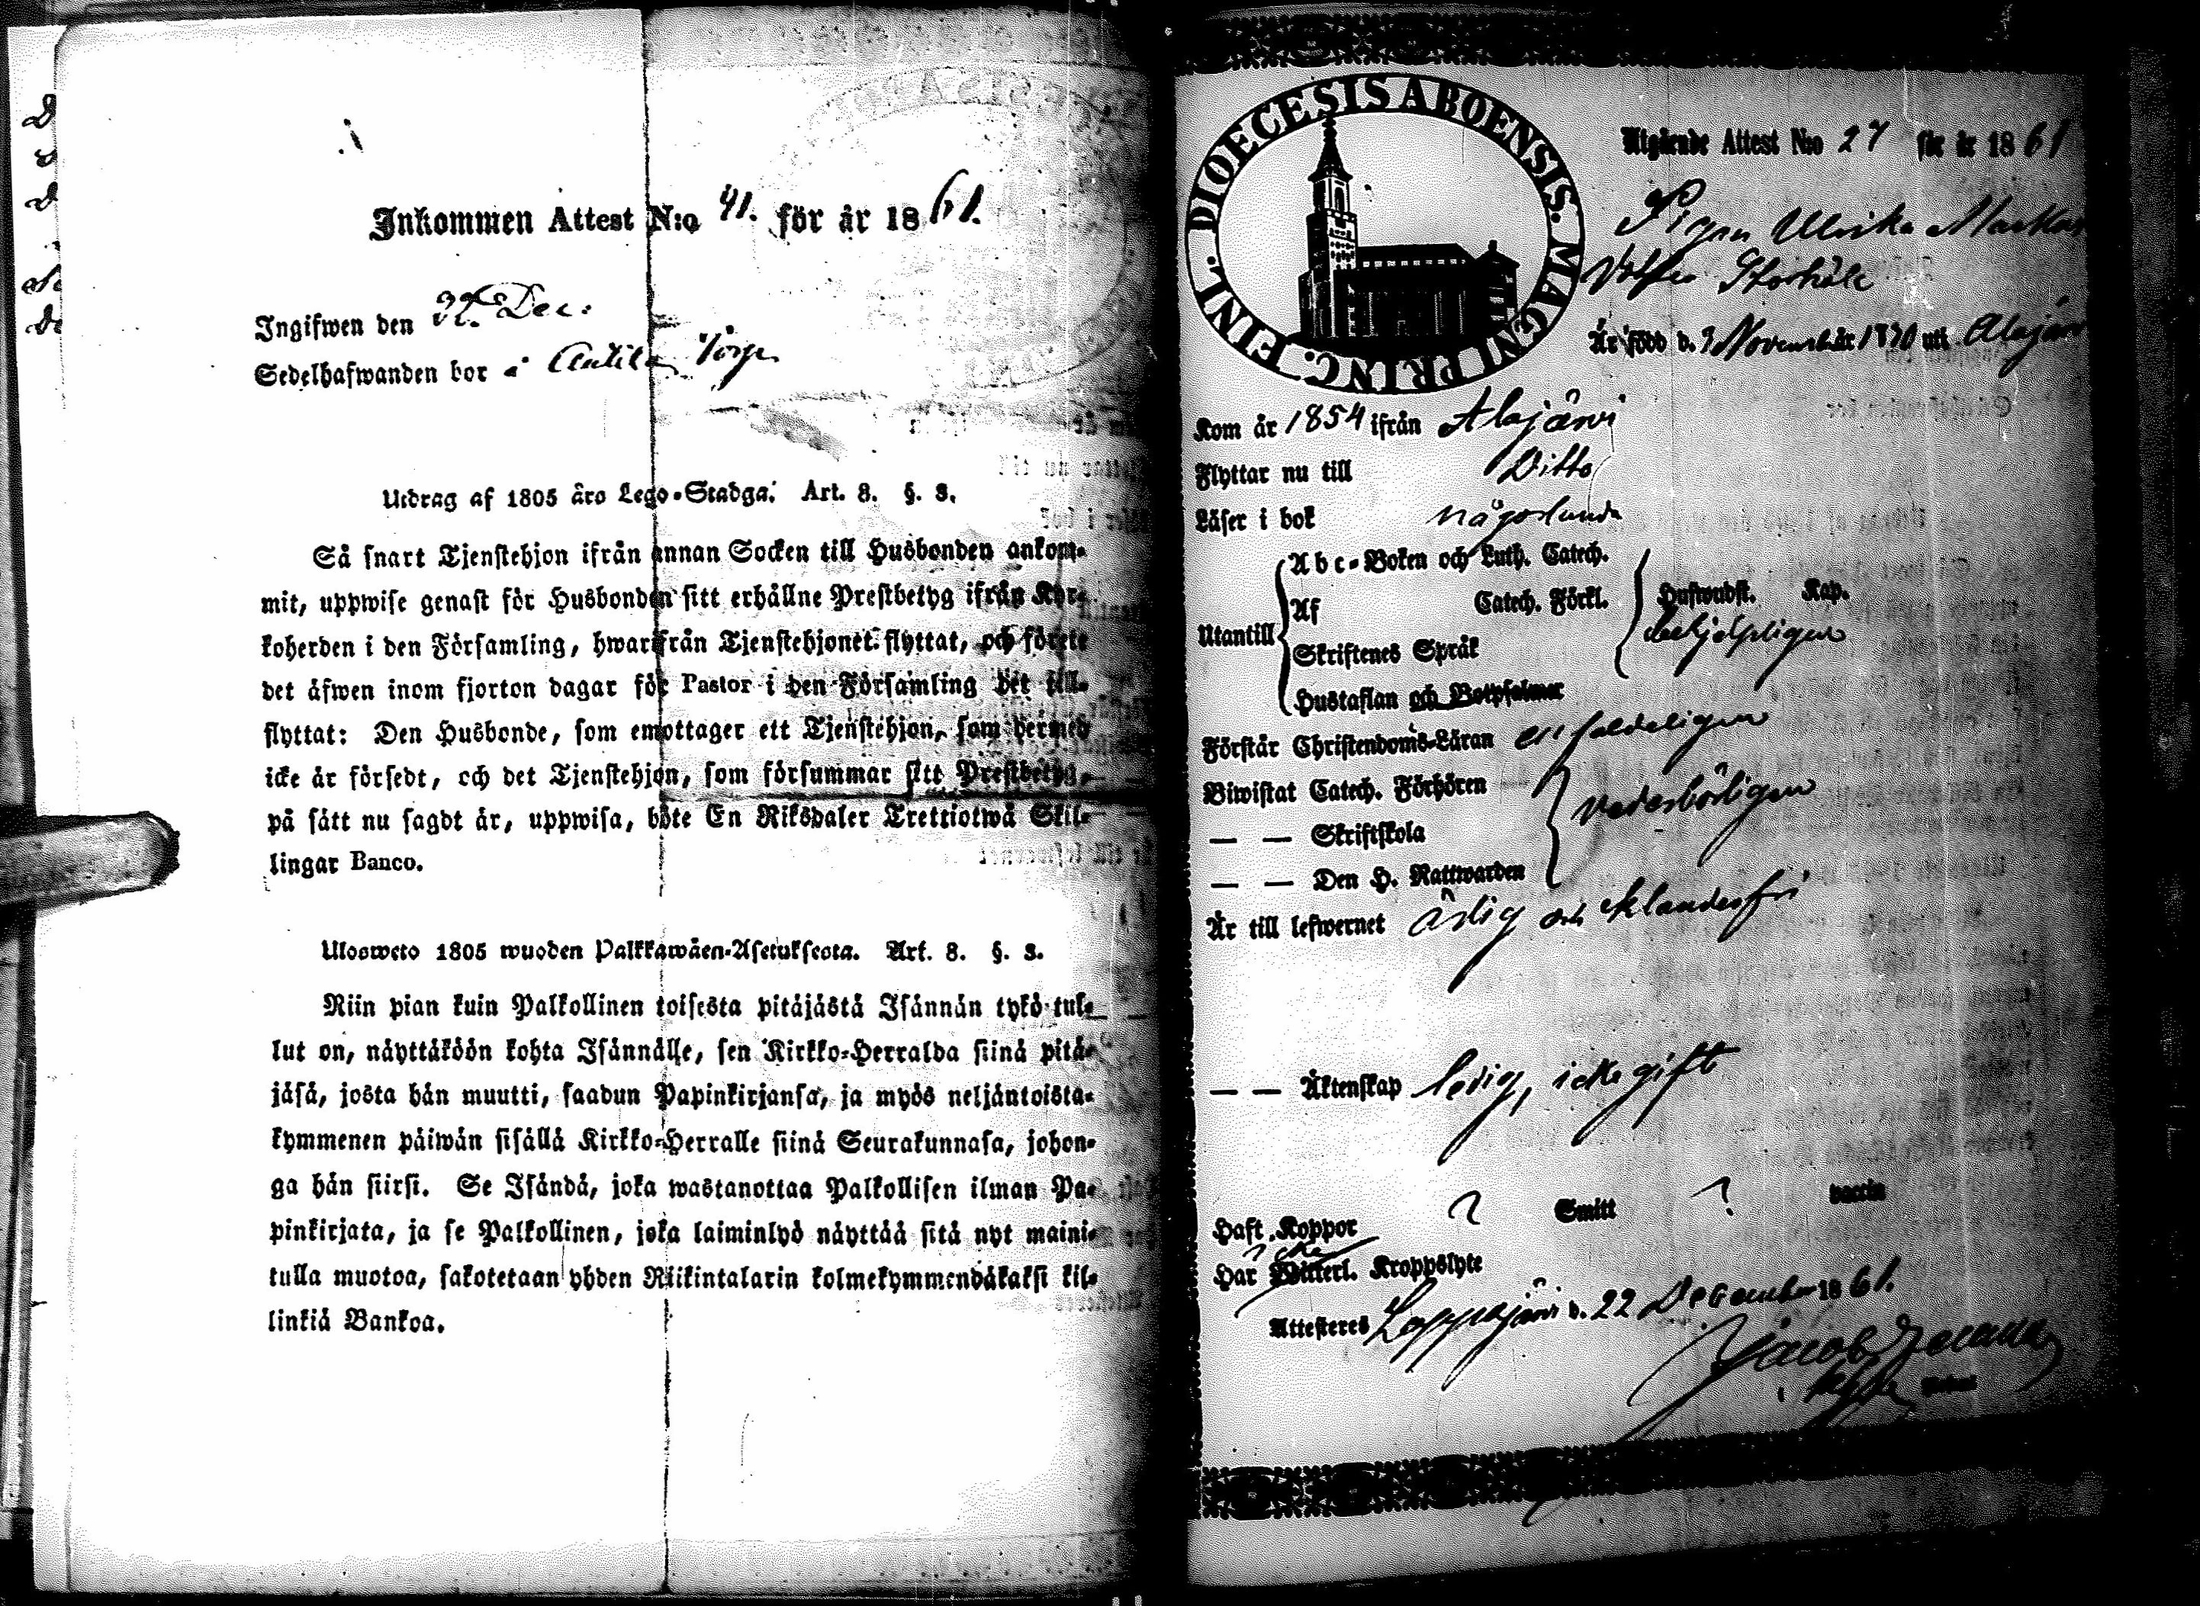 Inkommen Attest N:o 41. för år 1861.
Ingifwen den Dec.
Sedelhafwanden bor i
Utdrag af 1805 åro Lego-Stadga. Art. 8. §. 3.
Så snart Tjenstehjon ifrån annan Socken till Husbonden ankom-
mit, uppwise genast för Husbonden sitt erhållne Prestbetyg ifrån Kyr-
koherden i den Församling, hwarifrån Tjenstehjonet flyttat, och förete
det äfwen inom fjorton dagar för Pastor i den Församling det till-
flyttat: Den Husbonde, som emottager ett Tjenstehjon, som dermed
icke är försedt, och det Tjenstehjon, som försummar sitt Prestbetyg,
på sätt nu sagdt är, uppwisa, böte En Riksdaler Trettiotwå Skil-
lingar Banco.
Ulosweto 1805 wuoden Palkkawäen-Asetuksesta. Art. 8. §. 3.
Niin pian kuin Palkollinen toisesta pitäjästä Isännän tykö tul-
lut on, näyttäköön kohta Isännälle, sen Kirkko-Herralda siinä pitä-
jäsä, josta hän muutti, saadun Papinkirjansa, ja myös neljäntoista-
kymmenen päiwän sisällä Kirkko-Herralle siinä Seurakunnasa, johon-
ga hän siirsi. Se Isändä, joka wastanottaa Palkollisen ilman Pa-
pinkirjata, ja se Palkollinen, joka laiminlyö näyttää sitä nyt maini-
tulla muotoa, sakotetaan yhden Riikintalarin kolmekymmendäkaksi kil-
linkiä Bankoa.
DIOECESIS ABOENSIS. MAGNI PRINC. FINL.
Utgående Attest N:o 27 för år 1861
Pigan Ulrika
Är född d. 3 November år 1830 uti Alajär
Kom år 1854 ifrån Alajärvi
Flyttar nu till Ditto
Läser i bok någorlunda
Utantill
Abc-Boken och Luth. Catech.
Af Catech. Förkl.
Skriftenes Språk
Hustaflan och Botpsalmer
Huswudst. Kap.
behjelpligen
Förstår Christendoms-Läran enfaldeligen
Biwistat Catech. Förhören
— — Skriftskola
— — Den H. Nattwarden
vederbörligen
Är till lefwernet ärlig och klanderfri
— — Äktenskap ledig, icke gift
Haft Koppor ? Smitt ? vaccin
icke
Har Witterl. Kroppslyte
Attesteres Lappajärvi d. 22 December 1861.
Jacob